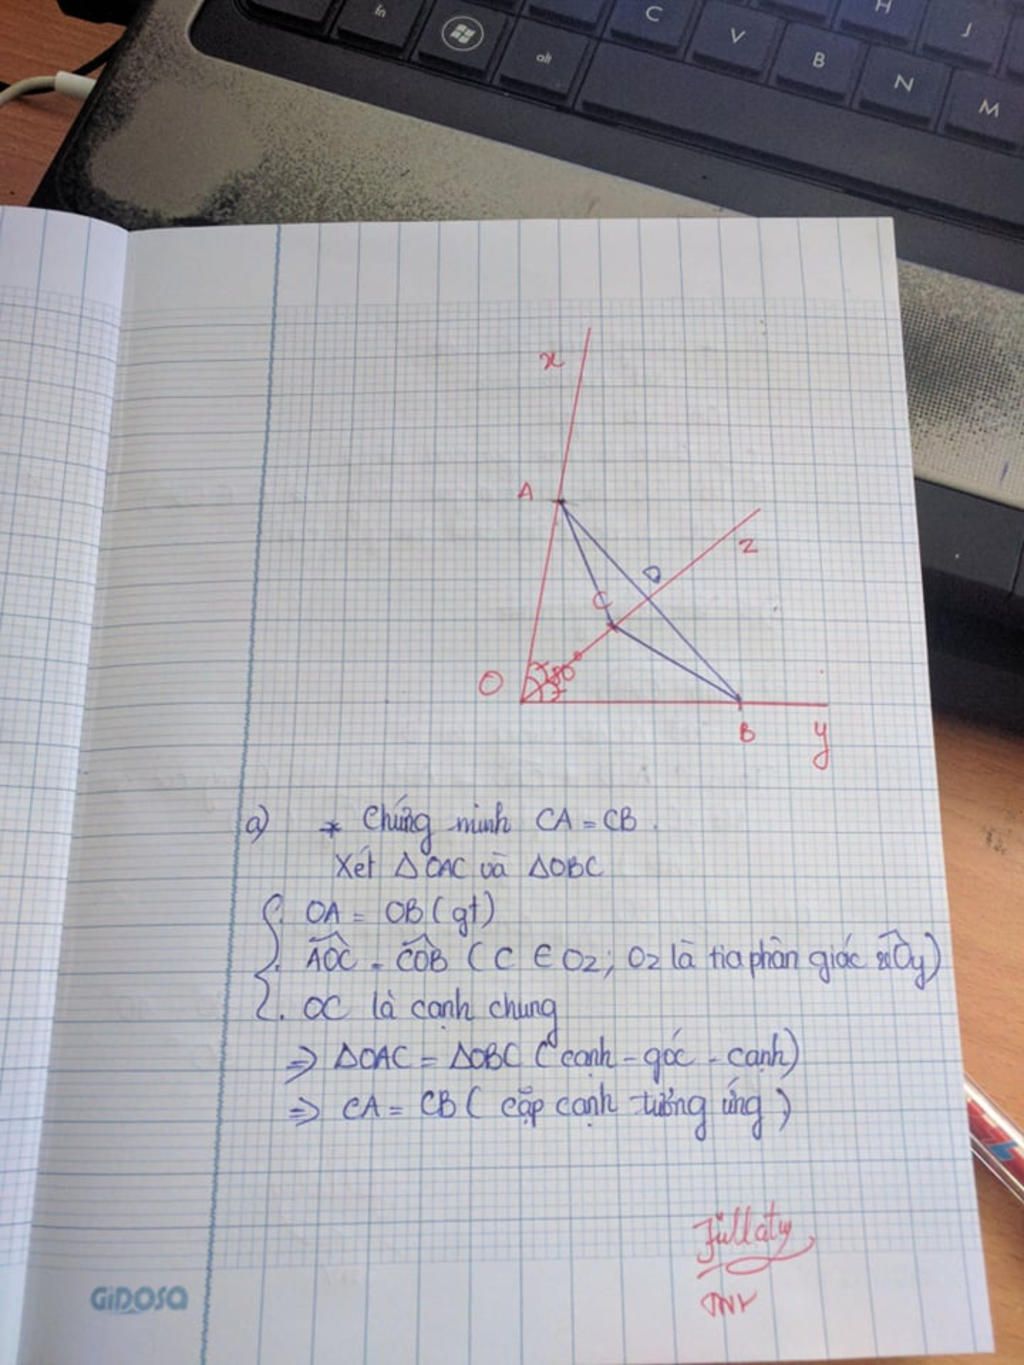 fn
alt
C
V
B
N
M
H
J
x
A
z
D
C
O
80°
B
y
a) * Chứng minh CA = CB.
Xét △OAC và △OBC
. OA = OB (gt)
. AOC = COB (C ∈ Oz; Oz là tia phân giác xOy)
. OC là cạnh chung
⇒ △OAC = △OBC (cạnh - góc - cạnh)
⇒ CA = CB (cặp cạnh tương ứng)
GiDOSA